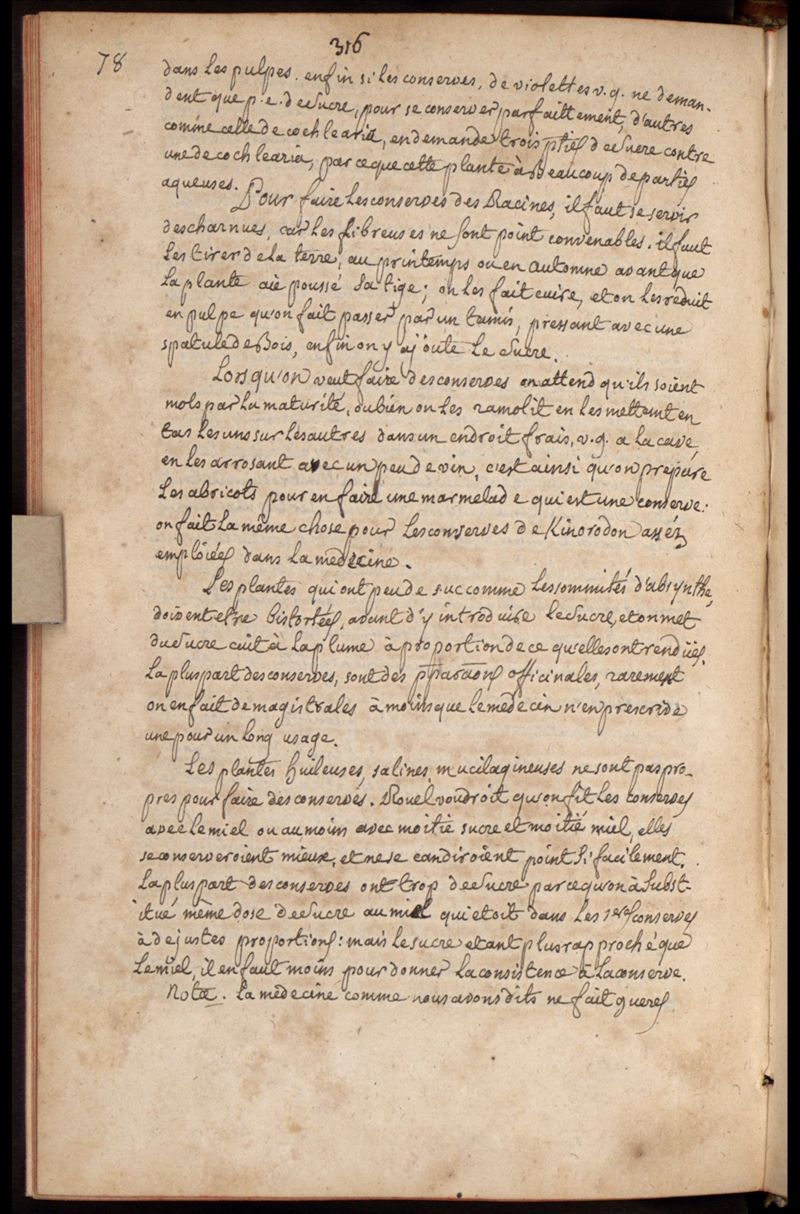 316
78
dans Les pulpes. enfin si les conserves, de violettes v.g. ne deman-
dent que p.e. de Sucre, pour se conserver parfaittement, d'autres
comme celle de cochlearia, en demande trois pties de Sucre contre
une de cochlearia, parceque cette plante à Beaucoup de parties
aqueuses. Pour faire Les conserves des Racines, il faut se servir
des charnues, car les fibreuses ne sont point convenables. il faut
Les tirer de La terre, au printemps ou en automne avant que
La plante aie poussé sa tige; on les fait cuire, et on les réduit
en pulpe qu'on fait passer par un tamis, pressant avec une
spatule de Bois, enfin on y ajoute Le Sucre.
Lorsqu'on veut faire des conserves on attend qu'ils soient
mols par La maturité, du bien on Les ramolit en les mettant en
tas Les uns sur les autres dans un endroit frais, v.g. a la cave
en les arrosant avec un peu de vin, c'est ainsi qu'on prepare
Les abricots pour en faire une marmelade qui est une conserve:
on fait La même chose pour Les conserves de Kinorodon assés
emploiées dans la medecine.
Les plantes qui ont peu de suc comme Les sommités d'absynthe,
doivent etre bistortées, avant d'y introduire Le Sucre, et on met
du Sucre cuit à La plume à proportion de ce qu'elles ont rendües.
La pluspart des conserves, sont des pparaons officinales, rarement
on en fait de magistrales à moins que le medecin n'en prescride
une pour un long usage.
Les plantes huileuses, salines, mucilagineuses ne sont pas pro-
pres pour faire des conserves. Rouel voudroit qu'on fit Les conserves
avec le miel ou au moins avec moitie sucre et moitié miel, elles
se conserveroient mieux, et ne se candiroient point si facilement.
La pluspart des conserves ont trop de Sucre parcequ'on à Subst-
itué même dose de Sucre au miel qui etoit dans Les 1eres conserves
à de justes proportions: mais le sucre etant plus rapproché que
Le miel, il en faut moins pour donner La consistence à La conserve.
Nota. La medecine comme nous avons dits ne fait gueres